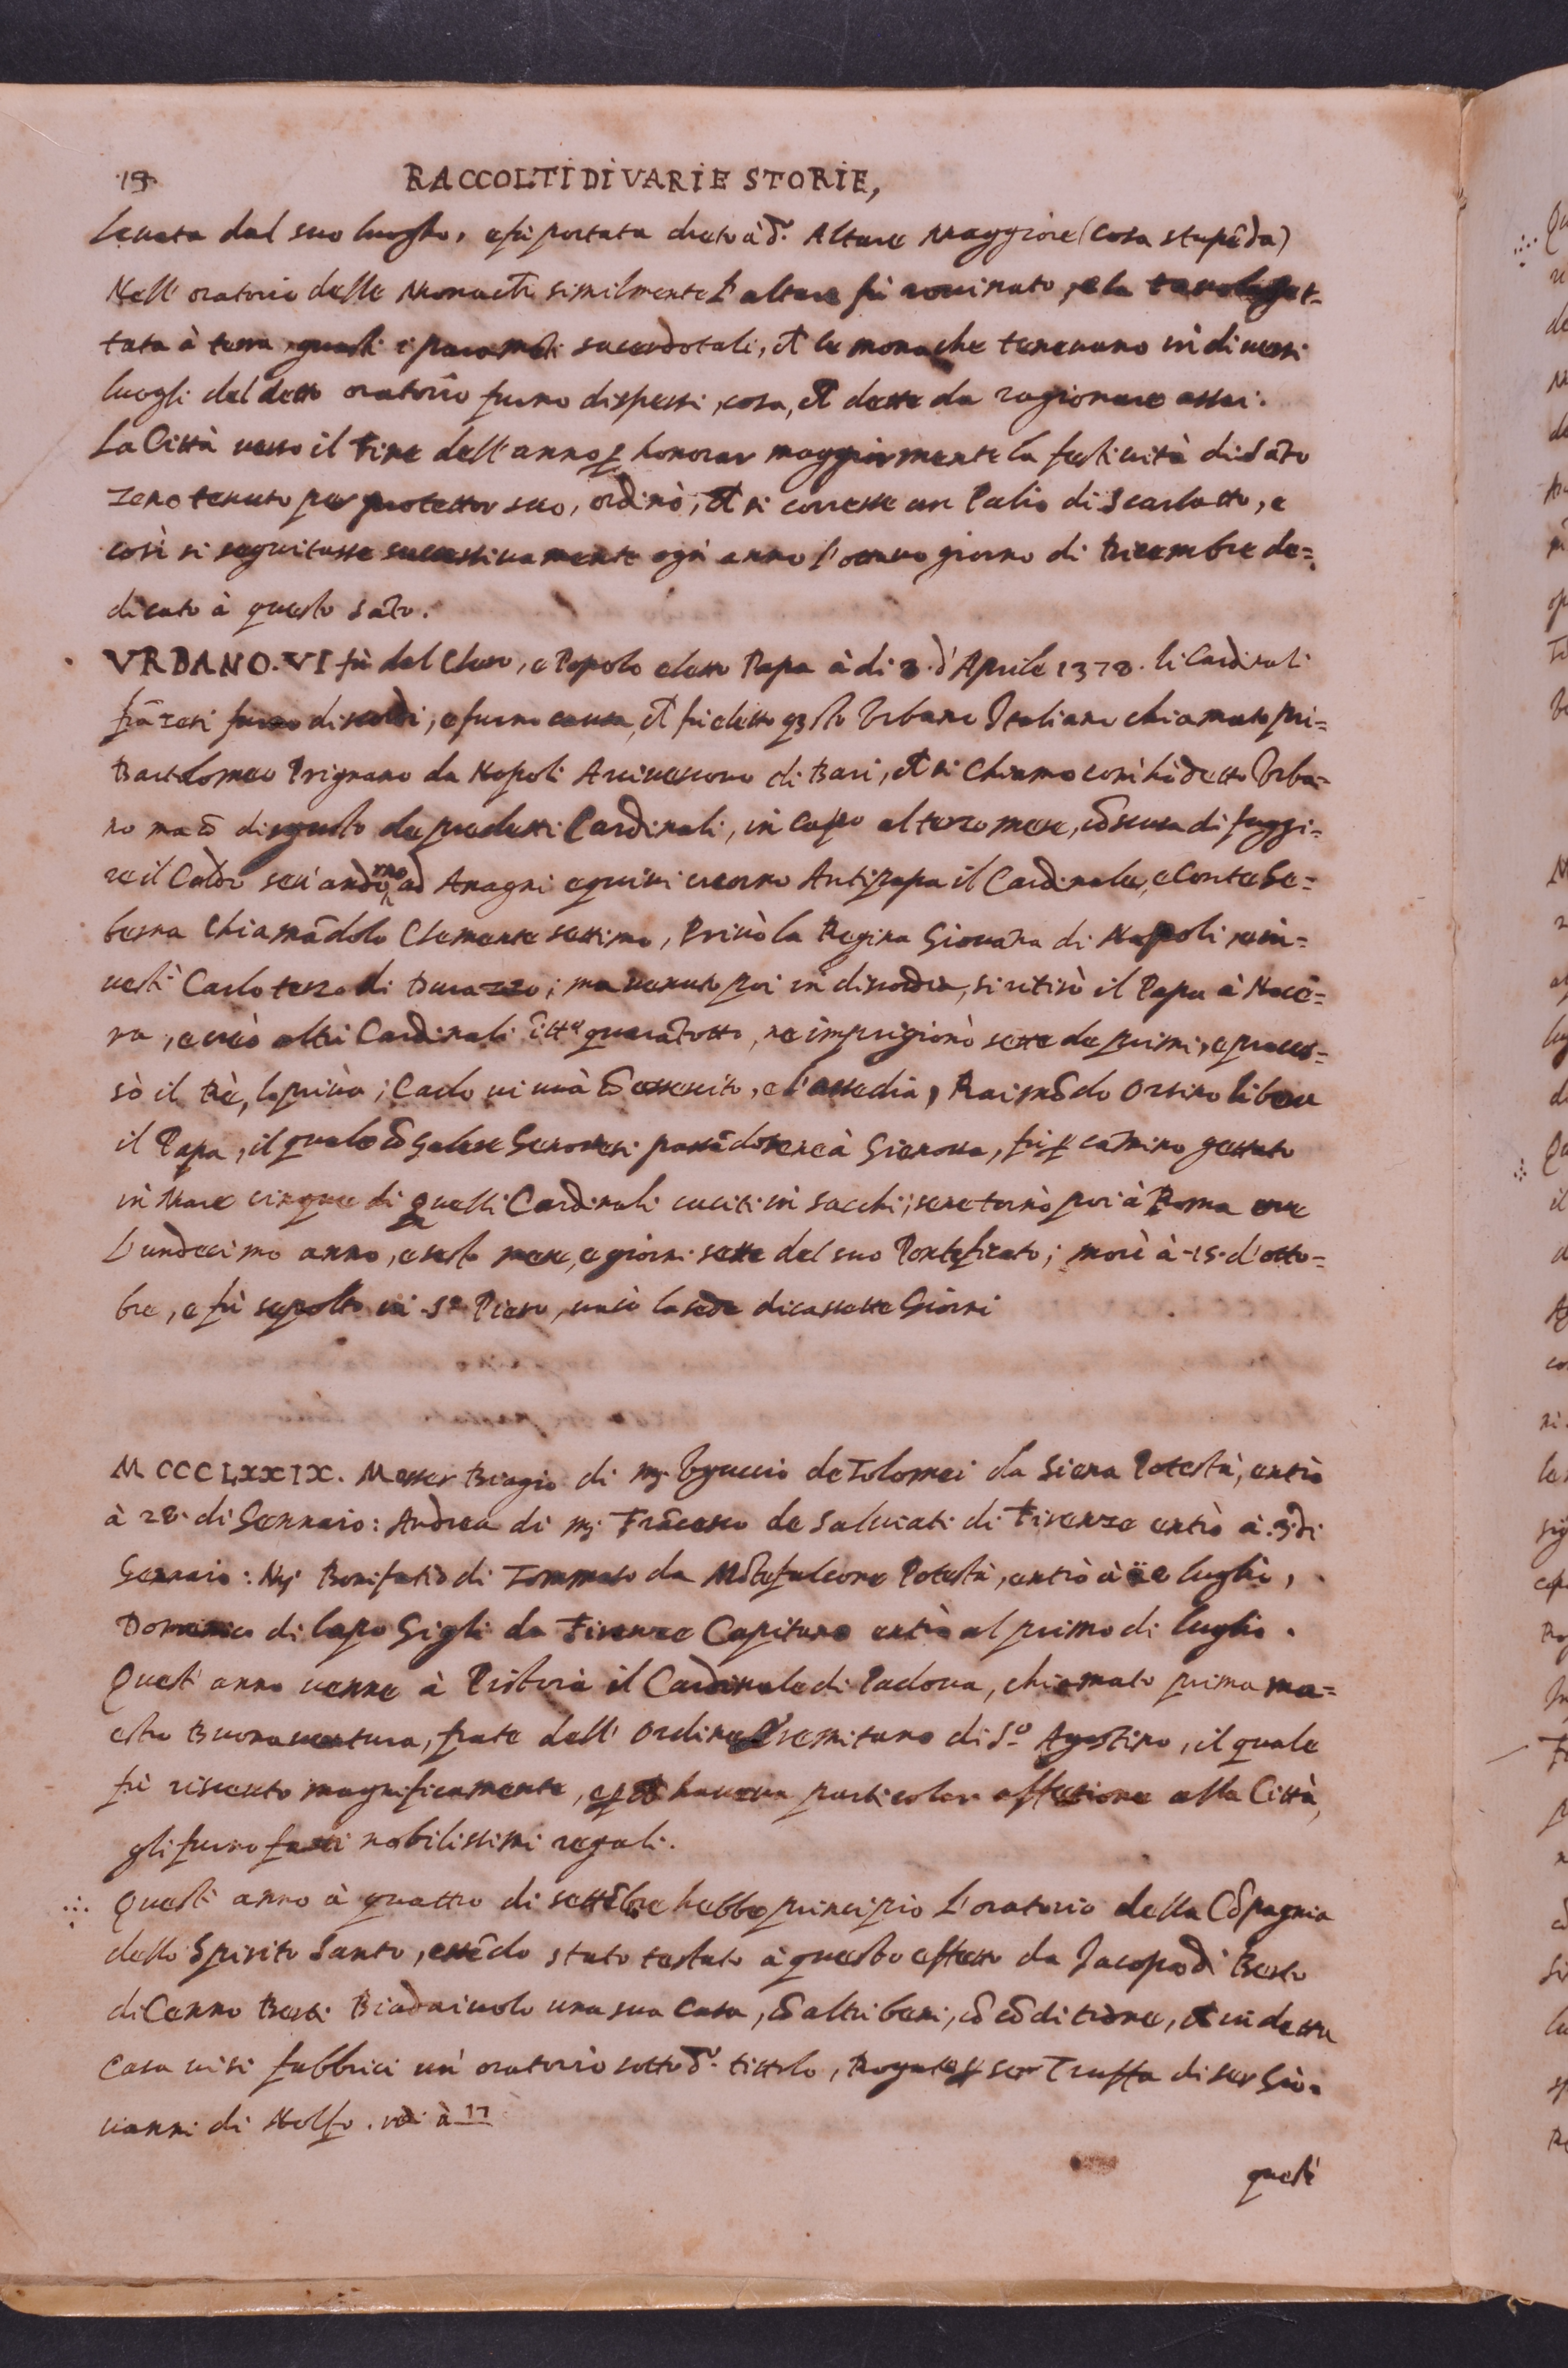 19.
RACCOLTI DI VARIE STORIE,
Leuata dal suo luogho, e fù portata dreto à d.º Altare Maggiore (cosa stupēda)
Nell' oratorio delle Monache similmente l'altare fù rouinato, e la tauola get-
tata à terra, i paramēti sacerdotali, che le monache teneuano in diuersi
luoghi del detto oratorio furno dispersi, cosa, che dette da ragionare assai.
La Città uerso il Fine dell'anno p honorar maggiormente la festiuità di Sāto
Zeno tenuto per protettor suo, ordinò, che si corresse un Palio di Scarlatto, e
così si seguitasse successiuamente ogni anno l'ottauo giorno di Dicembre de=
dicato à questo Sāto.
VRBANO. VI fù dal Clero, e Popolo eletto Papa à di 8. d'Aprile 1378. li Cardinali
frāzesi furno discordi, e furno causa, che fù eletto q3sto Vrbano Italiano chiamato pri=
Bartolomeo Prignano da Napoli Arciuescouo di Bari, che si chiamò Vrba=
no ma cō disgusto de predetti Cardinali, in capo al terzo mese, cō scusa di fuggi=
re il Caldo sen' andorno ad Anagni e quiui creorno Antipapa il Cardinale, e Conte Ge=
benna chiamādolo Clemente settimo, Priuò la Regina Giouāna di Napoli, e in=
uestì Carlo terzo di Durazzo; ma uenuto poi in discordia, si ritirò il Papa à Nocē=
ra, e creò altri Cardinali quarātotto, ne imprigionò sette de primi, e proces=
sò il Rè, lo priuò; Carlo ui uà cō essercito, e l'assedia, Raimōdo Orsino libera
il Papa, il quale cō Galere Genouesi passādosene à Gienoua, fù p camino gettato
in Mare cinque di quelli Cardinali cuciti in sacchi; se ne tornò poi à Roma
L'undecimo anno, e sesto mese, e giorni sette del suo Pontificato; morì à -15- d'otto=
bre, e fù sepolto in Sº Piero, uacò la sede diciassette Giorni
MCCCLXXIX. Messer Biagio di mʃ. Vguccio de Tolomei da Siena Potestà, entrò
à 28. di Gennaio: Andrea di mʃ Frācesco de Saluiati di Firenze entrò à .3. di
Gennaio: Mʃ Bonifatio di Tommaso da Mōtefalcone Potestà, entrò à luglio,
Domenico di lapo Gigli da Firenze Capitano entrò al primo di luglio.
Quest' anno uenne à Pistoia il Cardinale di Padoua, chiamato prima ma=
estro Buonauentura, frate dell' Ordine Eremitano di Sº Agostino, il quale
fù riceuuto magnificamente, e p che haueua particolar affetione alla Città,
gli furno fatti nobilissimi regali.
Quest' anno à quattro di settēbre hebbe principio l'oratorio della Cōpagnia
dello Spirito Santo, essēdo stato testato à questo effetto da Jacopo di Berto
di Cenno Berti Biadaiuolo una sua casa, cō altri beni, cō cōditione, che in detta
casa ui si fabbrici un' oratorio sotto d.º tittolo, Rogato p ser Truffa di ser Gio=
uanni di Nolfo. vedi à 17
quest'